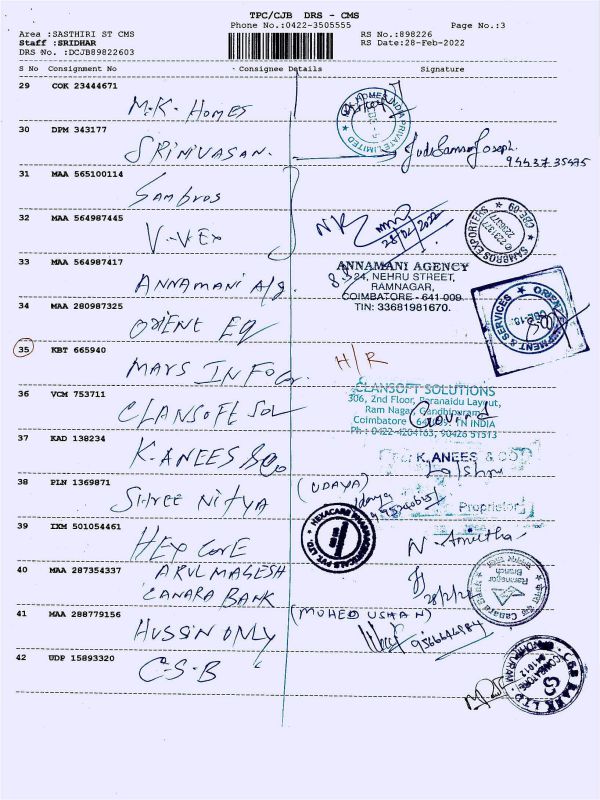 TPC/CJB DRS - CMS
Phone No.:0422-3505555
Page No.:3
Area :SASTHIRI ST CMS
RS No.:898226
Staff :SRIDHAR
RS Date:28-Feb-2022
DRS No. :DCJB89822603
S No Consignment No Consignee Details Signature
29 COK 23444671
M.K. HOMES
30 DPM 343177
SRINIVASAN.
94437 35475
31 MAA 565100114
Sambros
32 MAA 564987445
V-VEX
28/02/2022
SAMBROS EXPORTERS
33 MAA 564987417
ANNAMANI A/g.
ANNAMANI AGENCY
24, NEHRU STREET,
RAMNAGAR,
COIMBATORE - 641 009
TIN: 33681981670.
34 MAA 280987325
ORIENT EQ
35 KBT 665940
MARS INFO
H/R
36 VCM 753711
CLANSOFT SOL
CLANSOFT SOLUTIONS
306, 2nd Floor, Paranaidu Layout,
Ram Nagar, Gandhipuram
Coimbatore TN INDIA
Ph : 0422-4204163, 90426 51513
37 KAD 138234
K.ANEES & Co
K. ANEES & CO
38 PLN 1369871
SHREE NITYA
(UDAYA)
Udaya
Proprietor
39 IXM 501054461
HEX CARE
HEXACARE PHARMACEUTICALS PVT. LTD.
N. Amutha
40 MAA 287354337
ARUL MAGESH
CANARA BANK
Canara Bank
Ramnagar
Branch
41 MAA 288779156
HUSSIN ONLY
(MOHED USHAN)
42 UDP 15893320
C-S-B
CSB BANK LTD